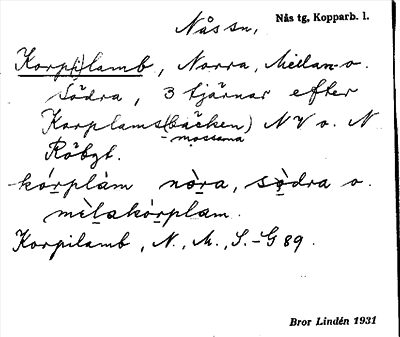 Nås sn,
Nås tg, Kopparb. l.
Korp(i)lamb, Norra, Mellan- o.
Södra, 3 tjärnar efter
Korplams(bäcken) NV o. N
mossarna
Råbgt.
kórplàm nòra, sòdra o.
mèlakórplam.
Korpilamb, N., M., S. - G 89.
Bror Lindén 1931